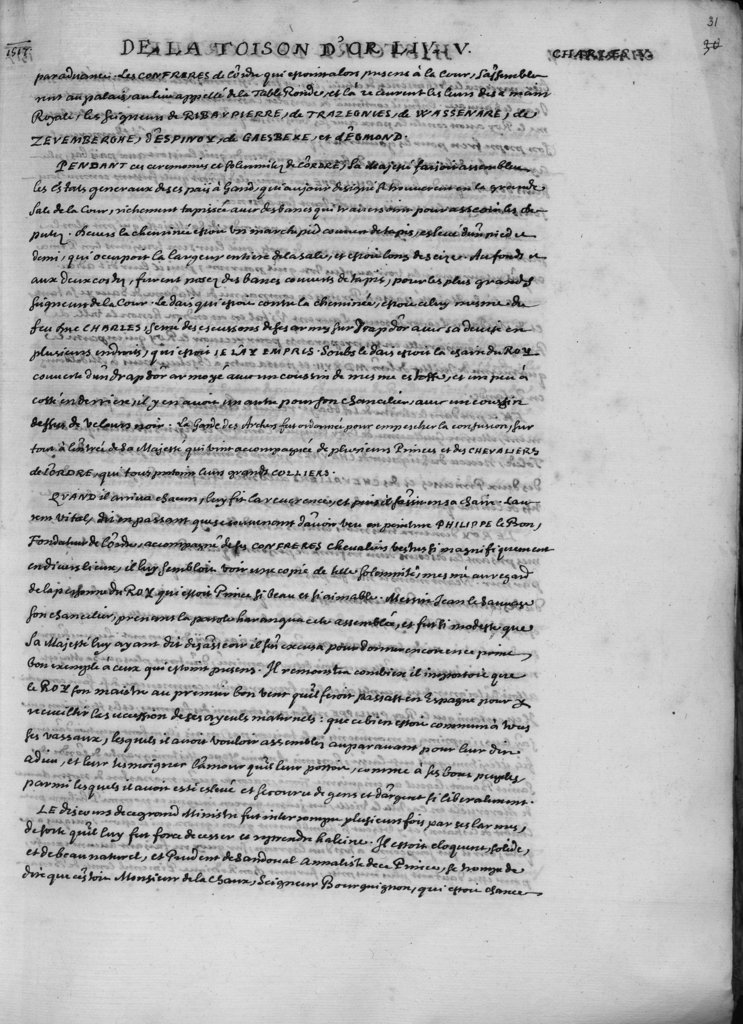 31
30
1517.
DE LA TOISON D'OR LIV. V.
CHARLES V.
paravant. Les CONFRERES de l'ordre qui estoient alors presens à la Cour, s'assemble
rent au palais, au lieu appellé de la Table Ronde, et là receurent les leurs des mains
Royale, les Seigneurs de RIBAVPIERRE, de TRAZEGNIES, de WASSENARE, de
ZEVEMBERGHE, d'ESPINOY, de GAESBEKE, et d'EGMOND.
PENDANT ces ceremonies et solemnitez de l'ORDRE, sa Majesté faisoit assembler
les Estats generaux de ses païs à Gand, qui au jour designé se trouverent en la grande
Sale de la Cour, richement tapissée avec des bancs qui traversoient pour asseoir les De
putez. Devers la cheminée estoit un marchepied couvert de tapis, eslevé d'un pied et
demi, qui occupoit la largeur entiere de la sale, et estoit long de seize. Au fonds et
aux deux costez, furent posez des bancs couverts de tapis, pour les plus grands
Seigneurs de la Cour. Le dais qui estoit contre la cheminée, estoit celuy mesme du
feu Duc CHARLES, semé des escussons de ses armes, sur drap d'or avec sa devise en
plusieurs endroits, qui estoit IE L'AY EMPRIS. Soubs le dais estoit la chaire du ROY
couverte d'un drap d'or armoyé avec un coussin de mesme estoffe, et un peu à
costé en derriere, il y en avoit un autre pour son Chancelier, avec un coussin
dessus de velours noir. La Garde des Archers fut ordonnée pour empescher la confusion, sur
tout à l'entrée de sa Majesté qui vint accompagnée de plusieurs Princes et des CHEVALIERS
de l'ORDRE, qui tous portoient leurs grands COLLIERS.
QUAND il arriva chacun, luy fit la reverence, et puis il s'assit en sa chaire. Lau
rent Vital, dit en passant que se souvenant d'avoir veu en peinture PHILIPPE le Bon,
Fondateur de l'Ordre, accompagné de ses CONFRERES Chevaliers vestus si magnifiquement
en divers lieux, il luy sembloit voir une copie de telle solemnité, mesme au regard
de la personne du ROY qui estoit Prince si beau et si aimable. Messire Jean le Sauvage
son Chancelier, prenant la parole harangua cete assemblée, et fut si modeste que
sa Majesté luy ayant dit de s'asseoir il s'en excusa pour donner encore en ce point,
bon exemple à ceux qui estoient presens. Il remonstra combien il importoit que
le ROY son maistre au premier bon vent qu'il feroit passast en Espagne pour y
recueillir les succession de ses ayeuls maternels: que ce bien estoit commun à tous
ses vassaux, lesquels il avoit voulu assembler auparavant pour leur dire
adieu, et leur tesmoigner l'amour qu'il leur portoit, comme à ses bons peuples
parmi lesquels il avoit esté eslevé et secouru de gens et d'argent si liberalement.
LE discours de ce grand Ministre fut interrompu plusieurs fois, par ses larmes,
de sorte qu'il luy fut force de cesser et reprendre haleine. Il estoit eloquent, solide,
et de beau naturel, et Prudent de Sandoual Annaliste de ce Prince, se trompe de
dire que c'estoit Monsieur de la Chaux, Seigneur Bourguignon, qui estoit Chance